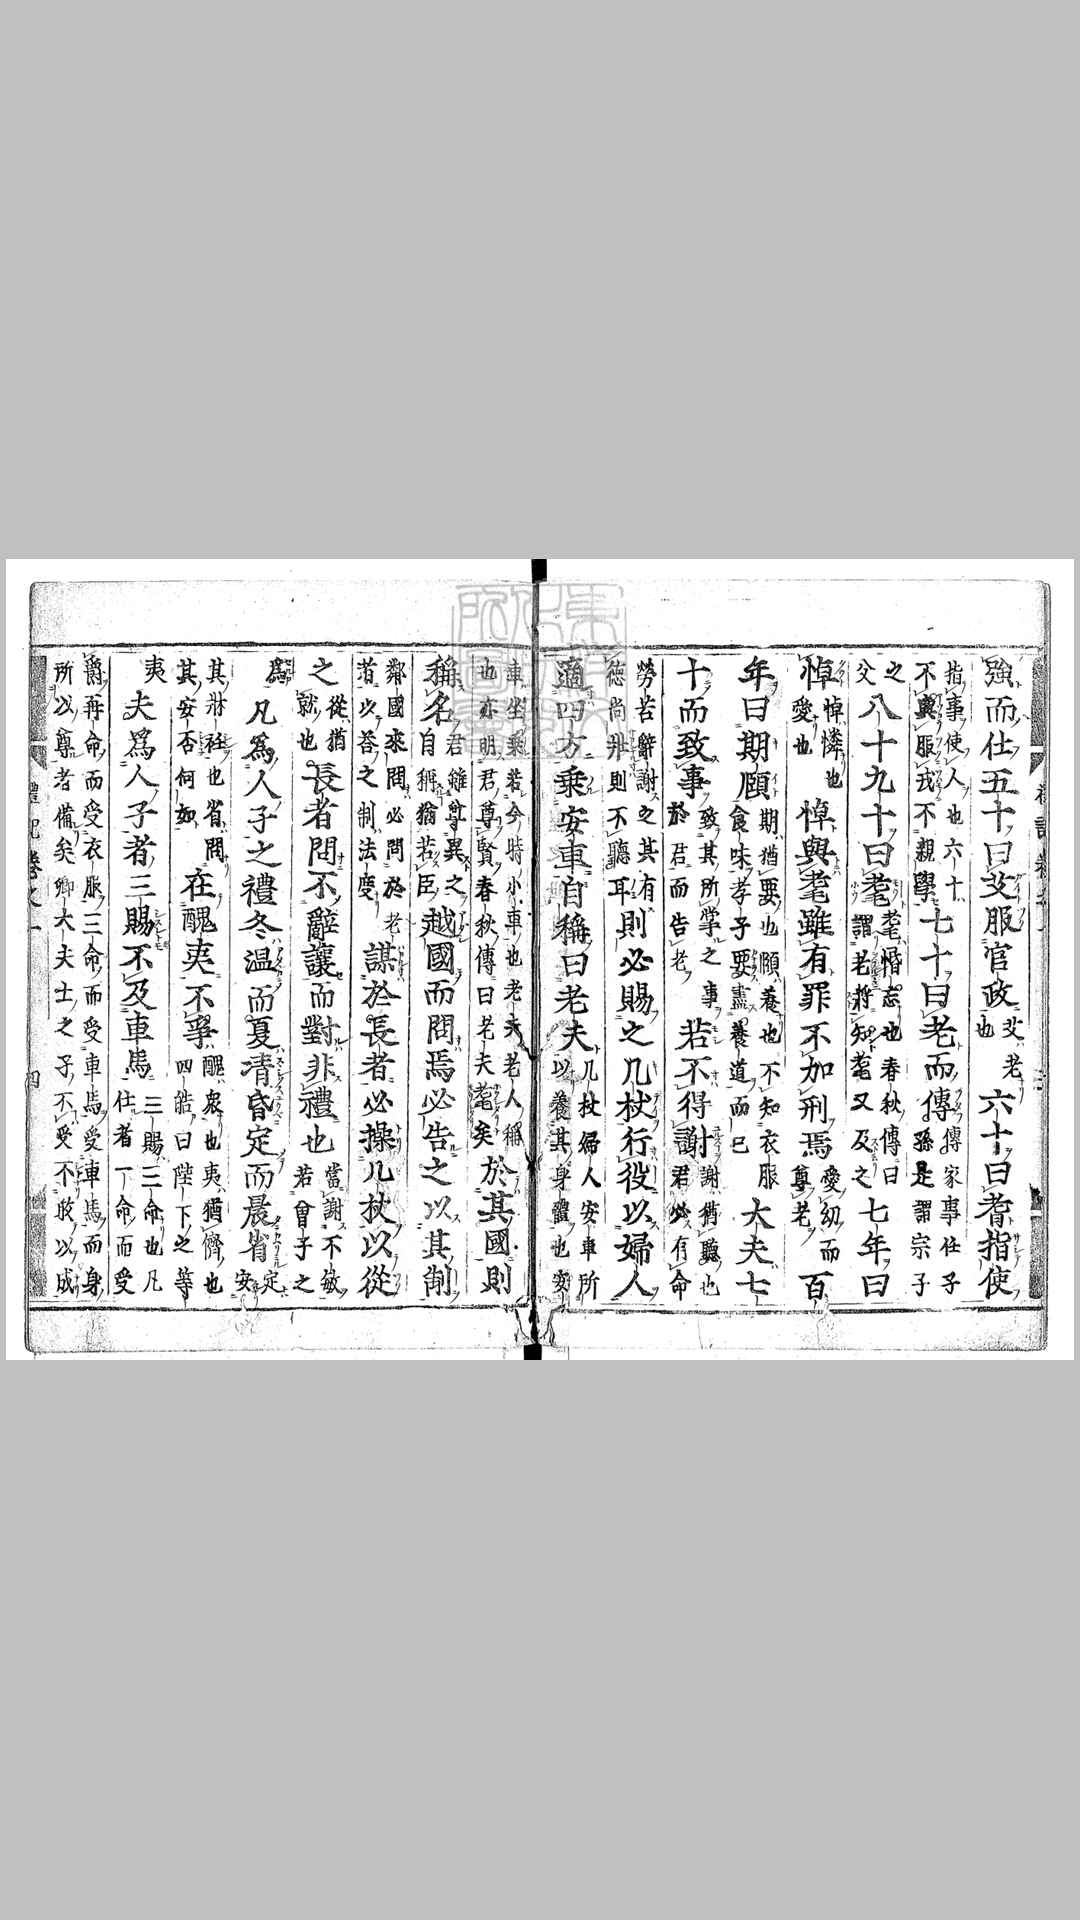 強而仕五十曰艾服官政艾老也六十曰耆指使
指事使人也六十不與服戎不親學七十曰老而傳傳家事任子孫是謂宗子
之父八十九十曰耄耄惛忘也春秋傳曰謂老將知耄又及之七年曰
悼悼憐愛也悼與耄雖有罪不加刑焉愛幼而尊老百
年曰期頤期猶要也頤養也不知衣服食味孝子要盡養道而已大夫七
十而致事致其所掌之事於君而告老若不得謝謝猶聽也君必有命
勞苦辭謝之其有德尚壯則不聽耳則必賜之几杖行役以婦人
適四方乗安車自稱曰老夫几杖婦人安車所以養其身體也安
車坐乘若今時小車也老夫老人稱也亦明君尊賢春秋傳曰老夫耄矣於其國則
稱名君雖尊異之自稱猶若臣越國而問焉必告之以其制
鄰國來問必問於老者以荅之制法度謀於長者必操几杖以從
之從猶就也長者問不辭讓而對非禮也當謝不敏若曾子之
爲凡爲人子之禮冬温而夏凊昏定而晨省定安
其牀衽也省問其安否何如在醜夷不爭醜衆也夷猶儕也四皓曰陛下之等
夷夫爲人子者三賜不及車馬三賜三命也凡仕者一命而受
爵再命而受衣服三命而受車馬受車馬而身所以尊者備矣卿大夫士之子不受不敢以成
禮記卷之一
四